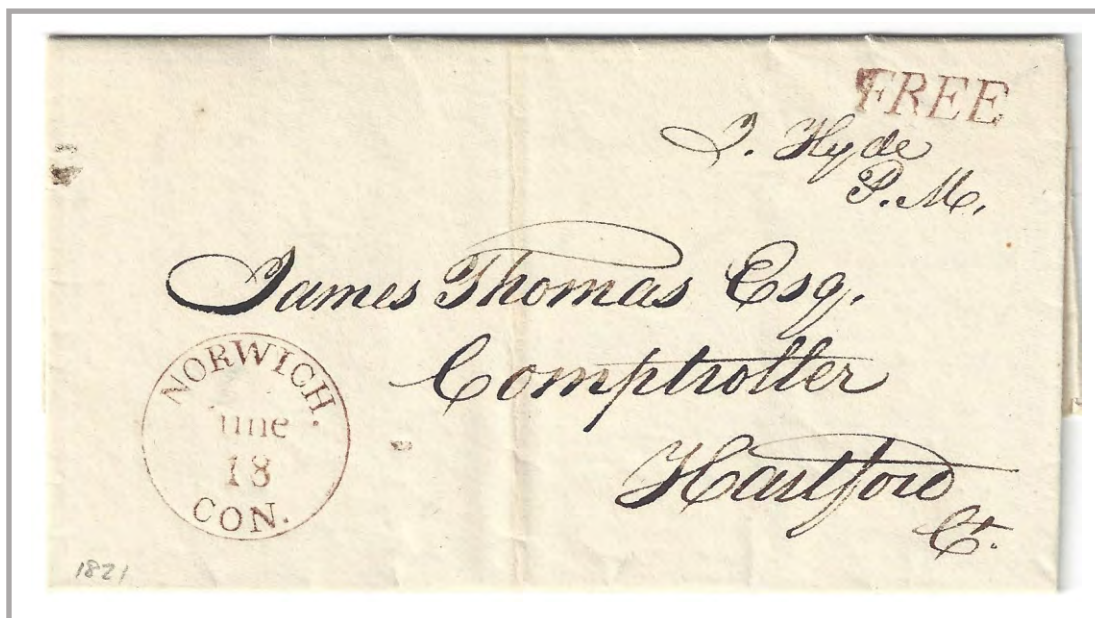 FREE
J. Hyde
P.M.
James Thomas Esq.
Comptroller
Hartford
Ct.
NORWICH.
une
18
CON.
1821